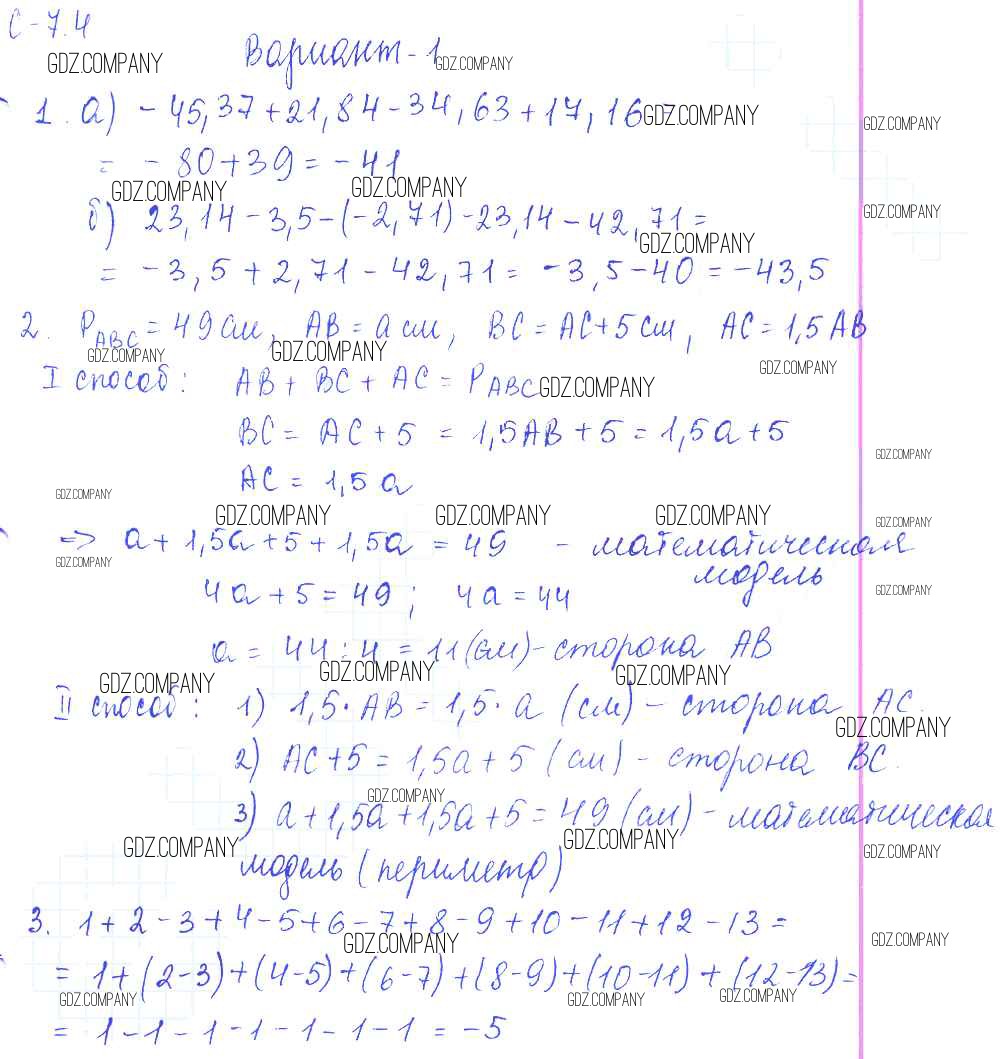 С-7.4
GDZ.COMPANY
Вариант-1
GDZ.COMPANY
1. а) -45,37+21,84-34,63+17,16=
GDZ.COMPANY
GDZ.COMPANY
= -80+39 = -41
GDZ.COMPANY
GDZ.COMPANY
б) 23,14-3,5-(-2,71)-23,14-42,71=
GDZ.COMPANY
GDZ.COMPANY
= -3,5+2,71-42,71= -3,5-40 = -43,5
2. P ABC = 49 см, AB = a см, BC = AC+5 см, AC = 1,5 AB
GDZ.COMPANY
GDZ.COMPANY
GDZ.COMPANY
I способ: AB + BC + AC = P ABC
GDZ.COMPANY
BC = AC+5 = 1,5AB+5 = 1,5a+5
GDZ.COMPANY
AC = 1,5 a
GDZ.COMPANY
GDZ.COMPANY
GDZ.COMPANY
GDZ.COMPANY
GDZ.COMPANY
=> a+1,5a+5+1,5a = 49 - математическая
модель
GDZ.COMPANY
4a+5=49; 4a=44
GDZ.COMPANY
a = 44:4 = 11(см)-сторона AB
GDZ.COMPANY
GDZ.COMPANY
GDZ.COMPANY
II способ: 1) 1,5·AB = 1,5·a (см) - сторона AC.
GDZ.COMPANY
2) AC+5 = 1,5a+5 (см) - сторона BC.
GDZ.COMPANY
3) a+1,5a+1,5a+5=49 (см) - математическая
GDZ.COMPANY
GDZ.COMPANY
GDZ.COMPANY
модель (периметр)
3. 1+2-3+4-5+6-7+8-9+10-11+12-13=
GDZ.COMPANY
GDZ.COMPANY
= 1+(2-3)+(4-5)+(6-7)+(8-9)+(10-11)+(12-13)=
GDZ.COMPANY
GDZ.COMPANY
GDZ.COMPANY
= 1-1-1-1-1-1-1 = -5